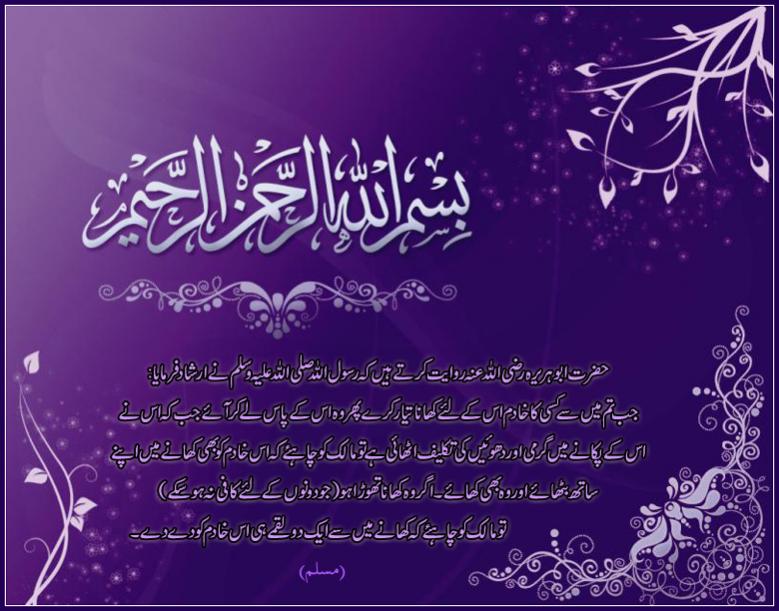 بِسْمِ اللهِ الرَّحْمٰنِ الرَّحِيْمِ
حضرت ابوہریرہ رضی اللہ عنہ روایت کرتے ہیں کہ رسول اللہ صلی اللہ علیہ وسلم نے ارشاد فرمایا:
جب تم میں سے کسی کا خادم اس کے لئے کھانا تیار کرے پھر وہ اس کے پاس لے کر آئے جب کہ اس نے
اس کے پکانے میں گرمی اور دھوئیں کی تکلیف اٹھائی ہے تو مالک کو چاہئے کہ اس خادم کو بھی کھانے میں اپنے
ساتھ بٹھائے اور وہ بھی کھائے۔ اگر وہ کھانا تھوڑا ہو (جو دونوں کے لئے کافی نہ ہو سکے)
تو مالک کو چاہئے کہ کھانے میں سے ایک دو لقمے ہی اس خادم کو دے دے۔
(مسلم)